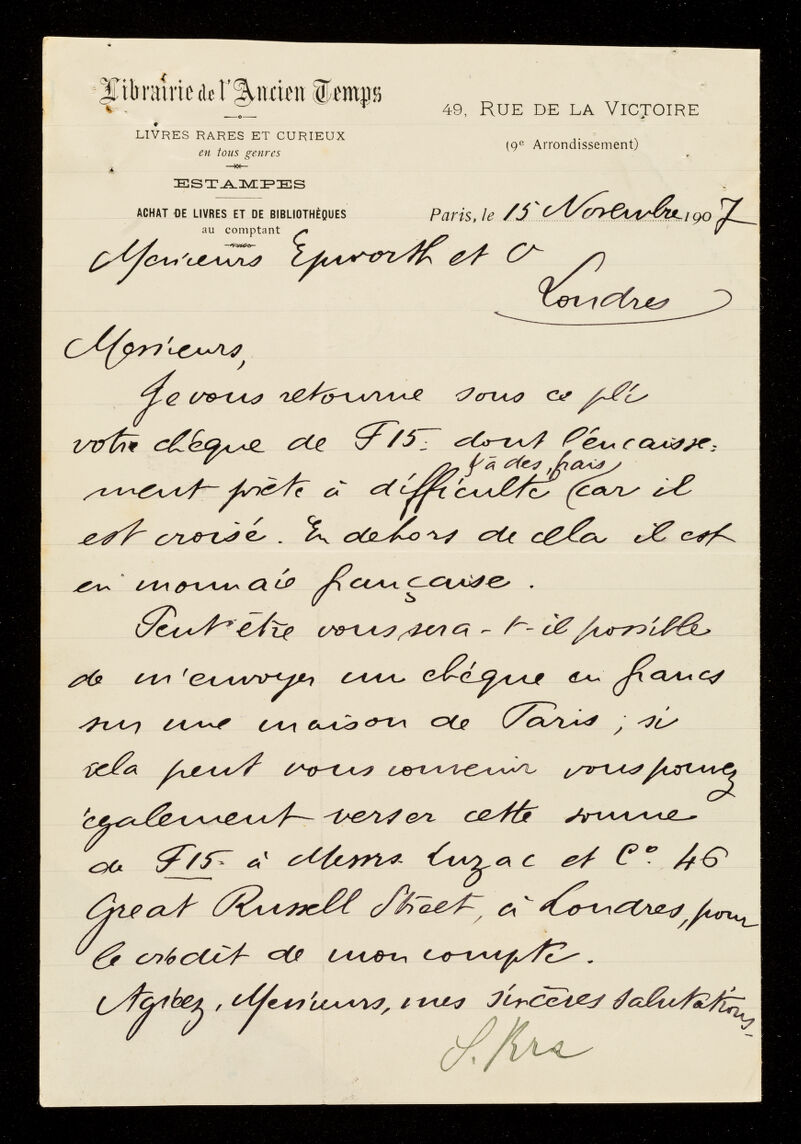 Librairie de l'Ancien Temps
LIVRES RARES ET CURIEUX
en tous genres
ESTAMPES
ACHAT DE LIVRES ET DE BIBLIOTHÈQUES
au comptant
49, RUE DE LA VICTOIRE
(9e Arrondissement)
Paris, le 15 Novembre 1907
Messieurs Epworth et
Londres
Messieurs,
Je vous retourne sous ce pli
votre chèque de F15. dont l'encaisse-
& à des frais
ment prète à difficulté (car il
est croisé. En dehors de cela il est
en monnaie française.
Peut être vous sera-t-il possible
de m'envoyer un chéque en francs
sur une maison de Paris ; si
cela peut vous convenir vous pouvez
également verser cette somme
de F15. à Messrs. Luzac et Co. 46
Great Russell Street, à Londres, pour
le crédit de mon compte.
Agréez, Messieurs, mes sincères salutations.
S. Kra